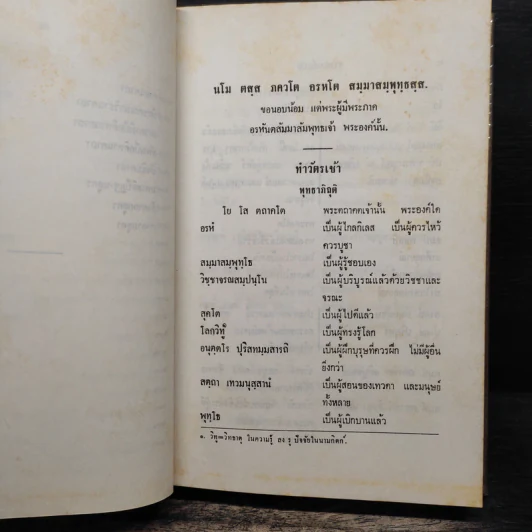 นโม ตสฺส ภควโต อรหโต สมฺมาสมฺพุทฺธสฺส.
ขอนอบน้อม แด่พระผู้มีพระภาค
อรหันตสัมมาสัมพุทธเจ้า พระองค์นั้น.
ทำวัตรเช้า
พุทธาภิถุติ
โย โส ตถาคโต พระตถาคตเจ้านั้น พระองค์ใด
อรหํ เป็นผู้ไกลกิเลส เป็นผู้ควรไหว้
ควรบูชา
สมฺมาสมฺพุทฺโธ เป็นผู้รู้ชอบเอง
วิชฺชาจรณสมฺปนฺโน เป็นผู้บริบูรณ์แล้วด้วยวิชชาและ
จรณะ
สุคโต เป็นผู้ไปดีแล้ว
โลกวิทู เป็นผู้ทรงรู้โลก
อนุตฺตโร ปุริสทมฺมสารถิ เป็นผู้ฝึกบุรุษที่ควรฝึก ไม่มีผู้อื่น
ยิ่งกว่า
สตฺถา เทวมนุสฺสานํ เป็นผู้สอนของเทวดา และมนุษย์
ทั้งหลาย
พุทฺโธ เป็นผู้เบิกบานแล้ว
๑. วิทู=วิทธาตุ ในความรู้ ลง รู ปัจจัยในนามกิตก์.